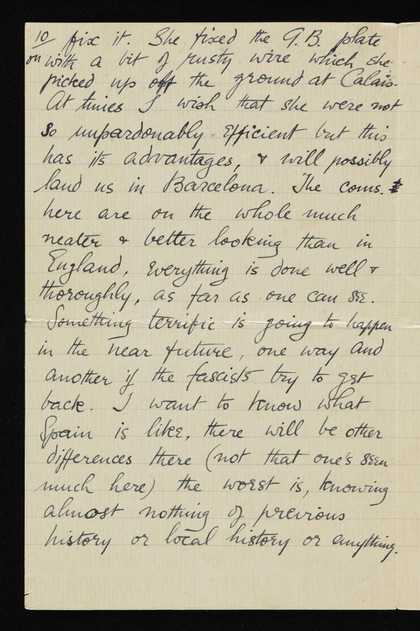 10 fix it. She fixed the G.B. plate
on with a bit of rusty wire which she
picked up off the ground at Calais.
At times I wish that she were not
so unpardonably efficient but this
has its advantages, & will possibly
land us in Barcelona. The coms.
here are on the whole much
neater & better looking than in
England, everything is done well &
thoroughly, as far as one can see.
Something terrific is going to happen
in the near future, one way and
another if the fascists try to get
back. I want to know what
Spain is like, there will be other
differences there (not that one's seen
much here) the worst is, knowing
almost nothing of previous
history or local history or anything.